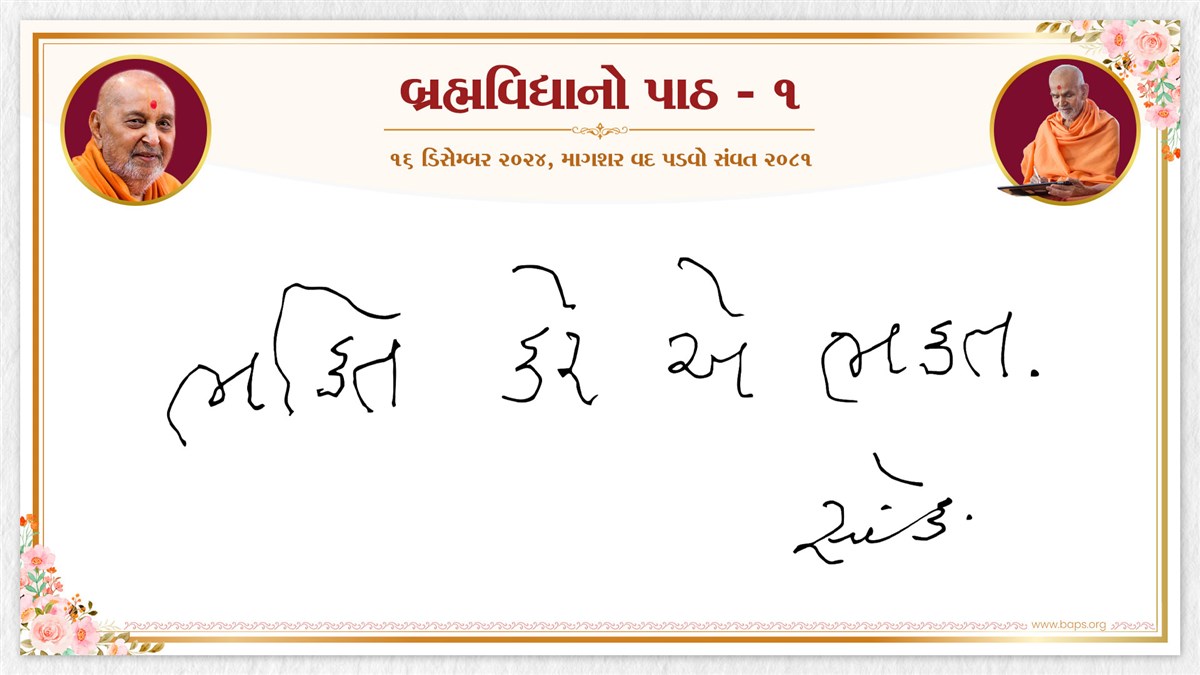 બ્રહ્મવિદ્યાનો પાઠ - ૧
૧૬ ડિસેમ્બર ૨૦૨૪, માગશર વદ પડવો સંવત ૨૦૮૧
ભક્તિ કરે એ ભક્ત.
www.baps.org